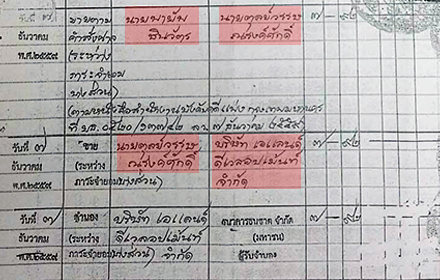 วันที่ ๗ ขายตาม นายพายัพ นายดุลย์วรรษ ๗ - ๙๒
ธันวาคม คำสั่งศาล ชินวัตร ณรงค์ศักดิ์
พ.ศ.๒๕๕๙ (ระหว่าง
ภาระจำยอม
บางส่วน)
(ตามหนังสือสำนักงานบังคับคดีแพ่ง กรุงเทพมหานคร
วันที่ ๗ ขาย นายดุลย์วรรษ บริษัท เอแลนด์ ๗ - ๙๒
ธันวาคม (ระหว่าง ณรงค์ศักดิ์ ดีเวลอปเม้นท์
พ.ศ.๒๕๕๙ ภาระจำยอมบางส่วน) จำกัด
วันที่ ๗ จำนอง บริษัท เอแลนด์ ธนาคารธนชาต จำกัด ๗ - ๙๒
ธันวาคม (ระหว่าง ดีเวลอปเม้นท์ (มหาชน)
พ.ศ.๒๕๕๙ ภาระจำยอมบางส่วน) จำกัด ผู้รับจำนอง